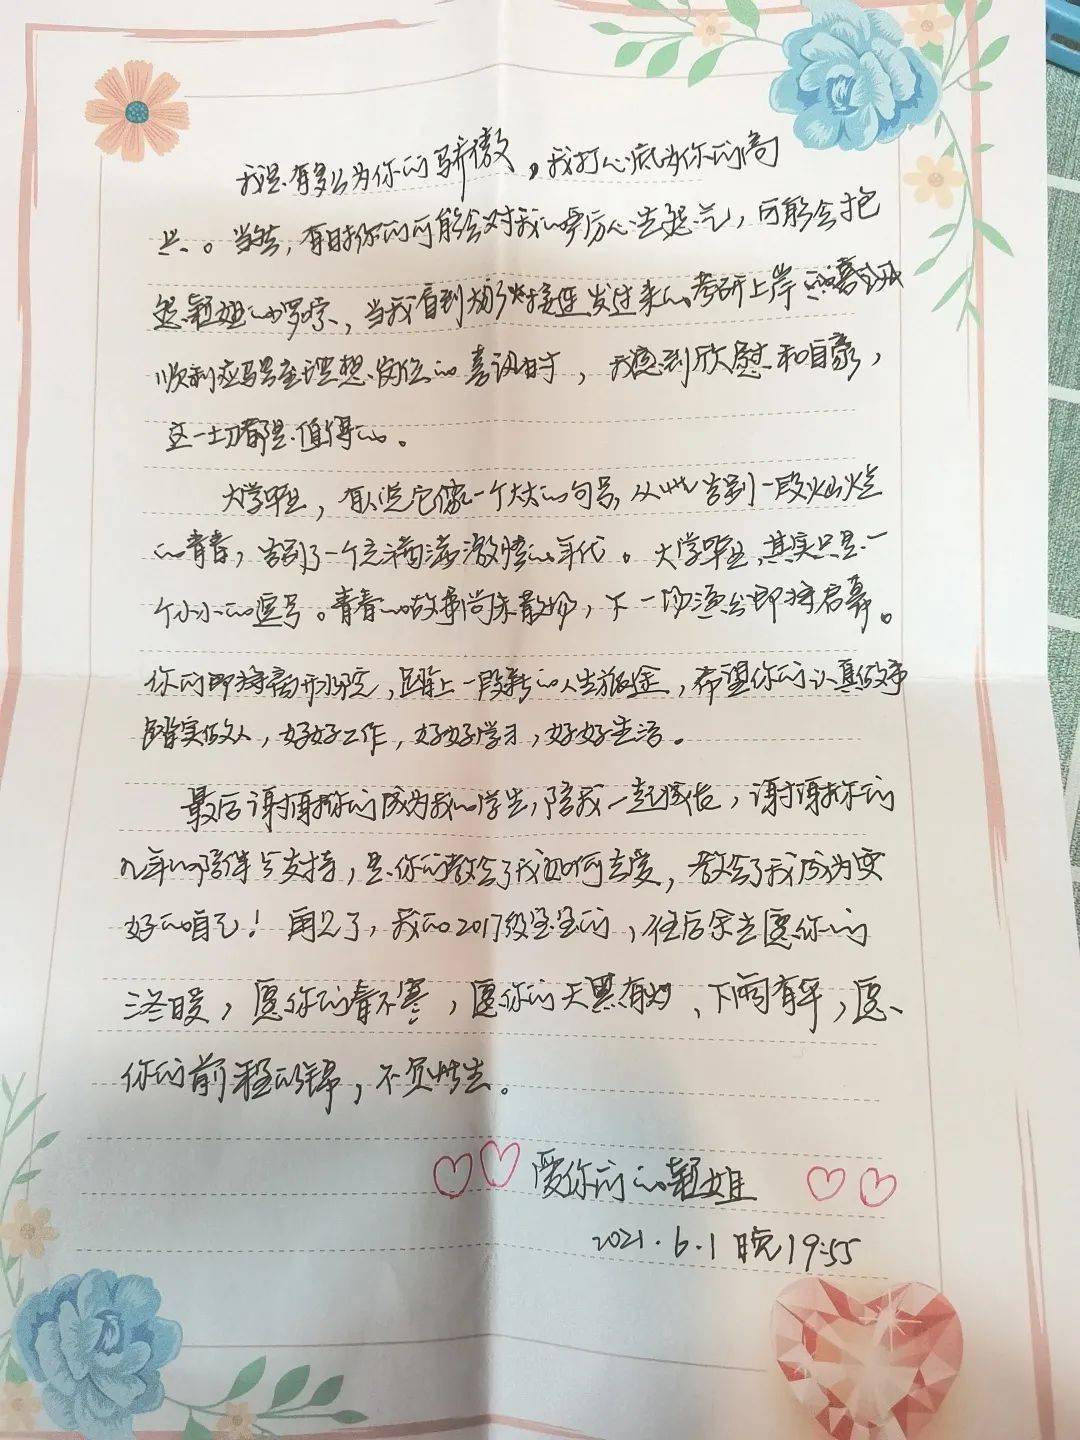 我是有多么为你们骄傲，我打心底为你们高
兴。当然，有时你们可能会对我的严厉心生怨气，可能会抱
怨颖姐的啰嗦，当我看到你们接连发过来的考研上岸的喜讯
顺利应聘至理想岗位的喜讯时，我感到欣慰和自豪，
这一切都是值得的。
大学毕业，有人说它像一个大大的句号，从此告别一段灿烂
的青春，告别了一个充满激情的年代。大学毕业，其实只是一
个小小的逗号。青春的故事尚未散场，下一场演出即将启幕。
你们即将离开，踏上一段新的人生旅途，希望你们认真做事
踏实做人，好好工作，好好学习，好好生活。
最后谢谢你们成为我的学生，陪我一起成长，谢谢你们
几年的陪伴与支持，是你们教会了我如何去爱，教会了我成为更
好的自己！再见了，我的2017级宝宝们，往后余生愿你们
三冬暖，愿你们春不寒，愿你们天黑有灯、下雨有伞，愿
你们前程似锦，不负此生。
爱你们的颖姐
2021.6.1晚19:55